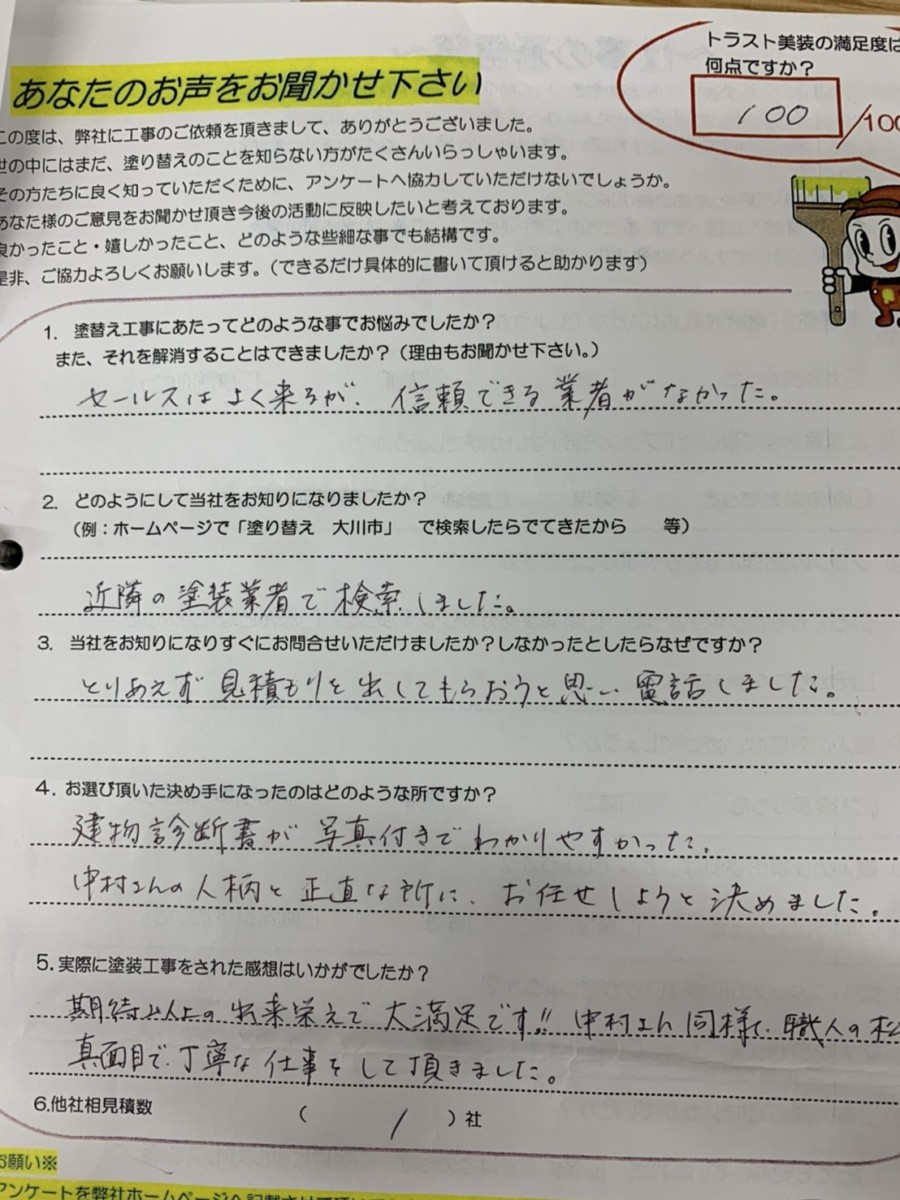 トラスト美装の満足度は
何点ですか？
100
/100
あなたのお声をお聞かせ下さい
この度は、弊社に工事のご依頼を頂きまして、ありがとうございました。
世の中にはまだ、塗り替えのことを知らない方がたくさんいらっしゃいます。
その方たちに良く知っていただくために、アンケートへ協力していただけないでしょうか。
あなた様のご意見をお聞かせ頂き今後の活動に反映したいと考えております。
良かったこと・嬉しかったこと、どのような些細な事でも結構です。
是非、ご協力よろしくお願いします。（できるだけ具体的に書いて頂けると助かります）
1. 塗替え工事にあたってどのような事でお悩みでしたか？
また、それを解消することはできましたか？（理由もお聞かせ下さい。）
セールスはよく来るが、信頼できる業者がなかった。
2. どのようにして当社をお知りになりましたか？
（例：ホームページで「塗り替え　大川市」　で検索したらでてきたから　　等）
近隣の塗装業者で検索しました。
3. 当社をお知りになりすぐにお問合せいただけましたか？しなかったとしたらなぜですか？
とりあえず見積もりを出してもらおうと思い電話しました。
4. お選び頂いた決め手になったのはどのような所ですか？
建物診断書が写真付きでわかりやすかった。
中村さんの人柄と正直な所に、お任せしようと決めました。
5. 実際に塗装工事をされた感想はいかがでしたか？
期待以上の出来栄えで大満足です!! 中村さん同様で、職人の松
真面目で、丁寧な仕事をして頂きました。
6.他社相見積数　（　1　）社
お願い※
アンケートを弊社ホームページへ記載させて頂い